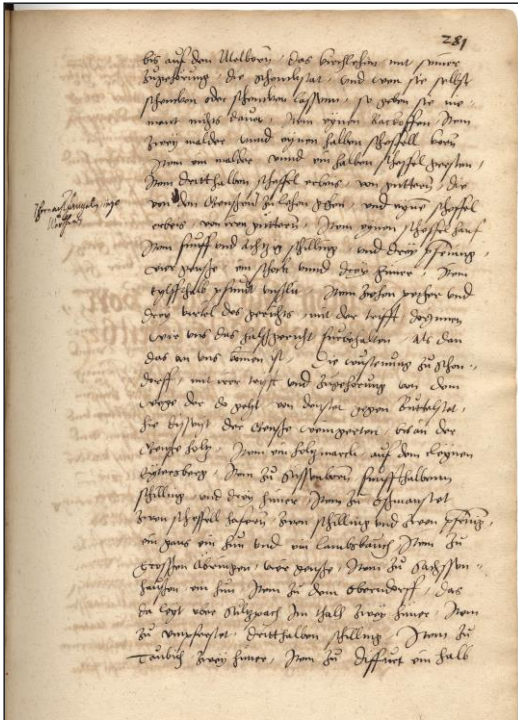 281
bis auf den Melborn, das kirchlehen mit seiner
zugehorung, die schenckstat, und wen sie selbst
schencken oder schencken lassen, so geben sie nie-
mant nichts davon, Item eynen backoffen Item
zwey malder unnd eynen halben scheffell korn
Item ein malder unnd ein halben scheffel gersten,
Item dritthalben scheffel erbeis, von guttern, die
von den zu lehen gehen, und eyne scheffel
erbeis, von iren guttern, Item eynen scheffel hanf
Item funff und achtzig schilling, und drey pfennig,
vier gense, ein schock unnd drey huner, Item
eylffthalb pfundt unslit, Item und
drey virtel des gerichts, mit der trifft
wir uns das halsgericht furbehalten, als dan
das an uns komen ist, Die wustenung zu schon-
dorff, mit irer und zugehorung von dem
wege der do geht von gegen Buttelstet,
hie dissent der weingarten, bis an der
holtz, Item ein holtzmarck auf dem cleynen
Item zu Sussenborn, funffthalbenn
schilling und drey huner Item zu Osmanstet
zwen scheffel hafern, zwen schilling und zwen pfennig,
ein gans ein hun und ein lambsbauch Item zu
grossen Obringen, vier gense, Item zu Sachssen-
hausen ein hun, Item zu dem oberndorff, das
da leyt vor Sultzbach im thall zwey huner, Item
zu Umpferstet, dritthalben schilling, Item zu
Taubich zwey huner, Item zu Diffurt ein halb